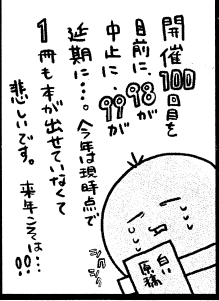 開催100回目を
目前に、98が
中止に、99が
延期に…。今年は現時点で
1冊も本が出せていなくて
悲しいです。来年こそは…!!
シクシク
白い
原稿